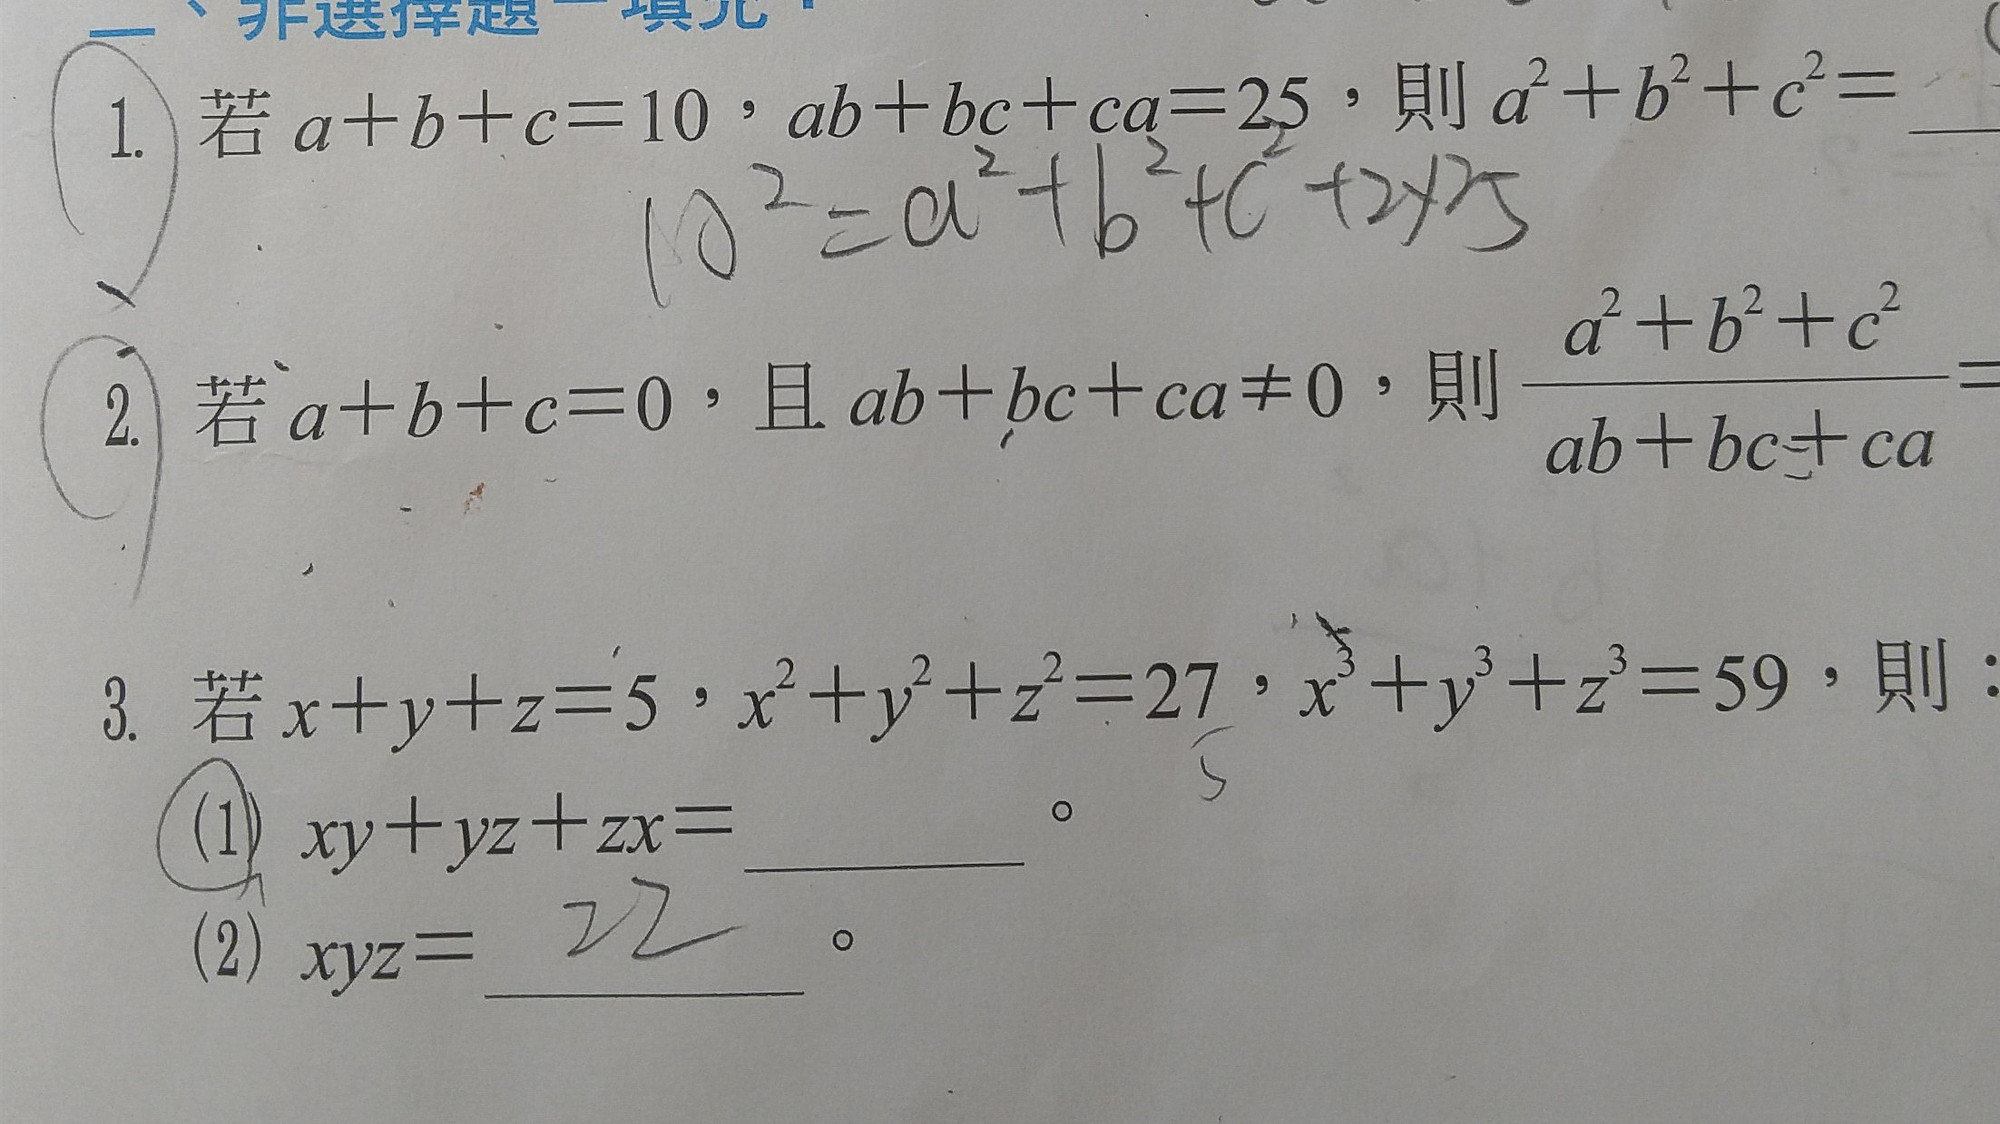 二、非選擇題－填充：
1. 若 a＋b＋c＝10，ab＋bc＋ca＝25，則 a²＋b²＋c²＝
10²＝a²＋b²＋c²＋2×25
2. 若 a＋b＋c＝0，且 ab＋bc＋ca≠0，則 (a²＋b²＋c²)/(ab＋bc＋ca)＝
3. 若 x＋y＋z＝5，x²＋y²＋z²＝27，x³＋y³＋z³＝59，則：
5
(1) xy＋yz＋zx＝________。
(2) xyz＝ 22 。